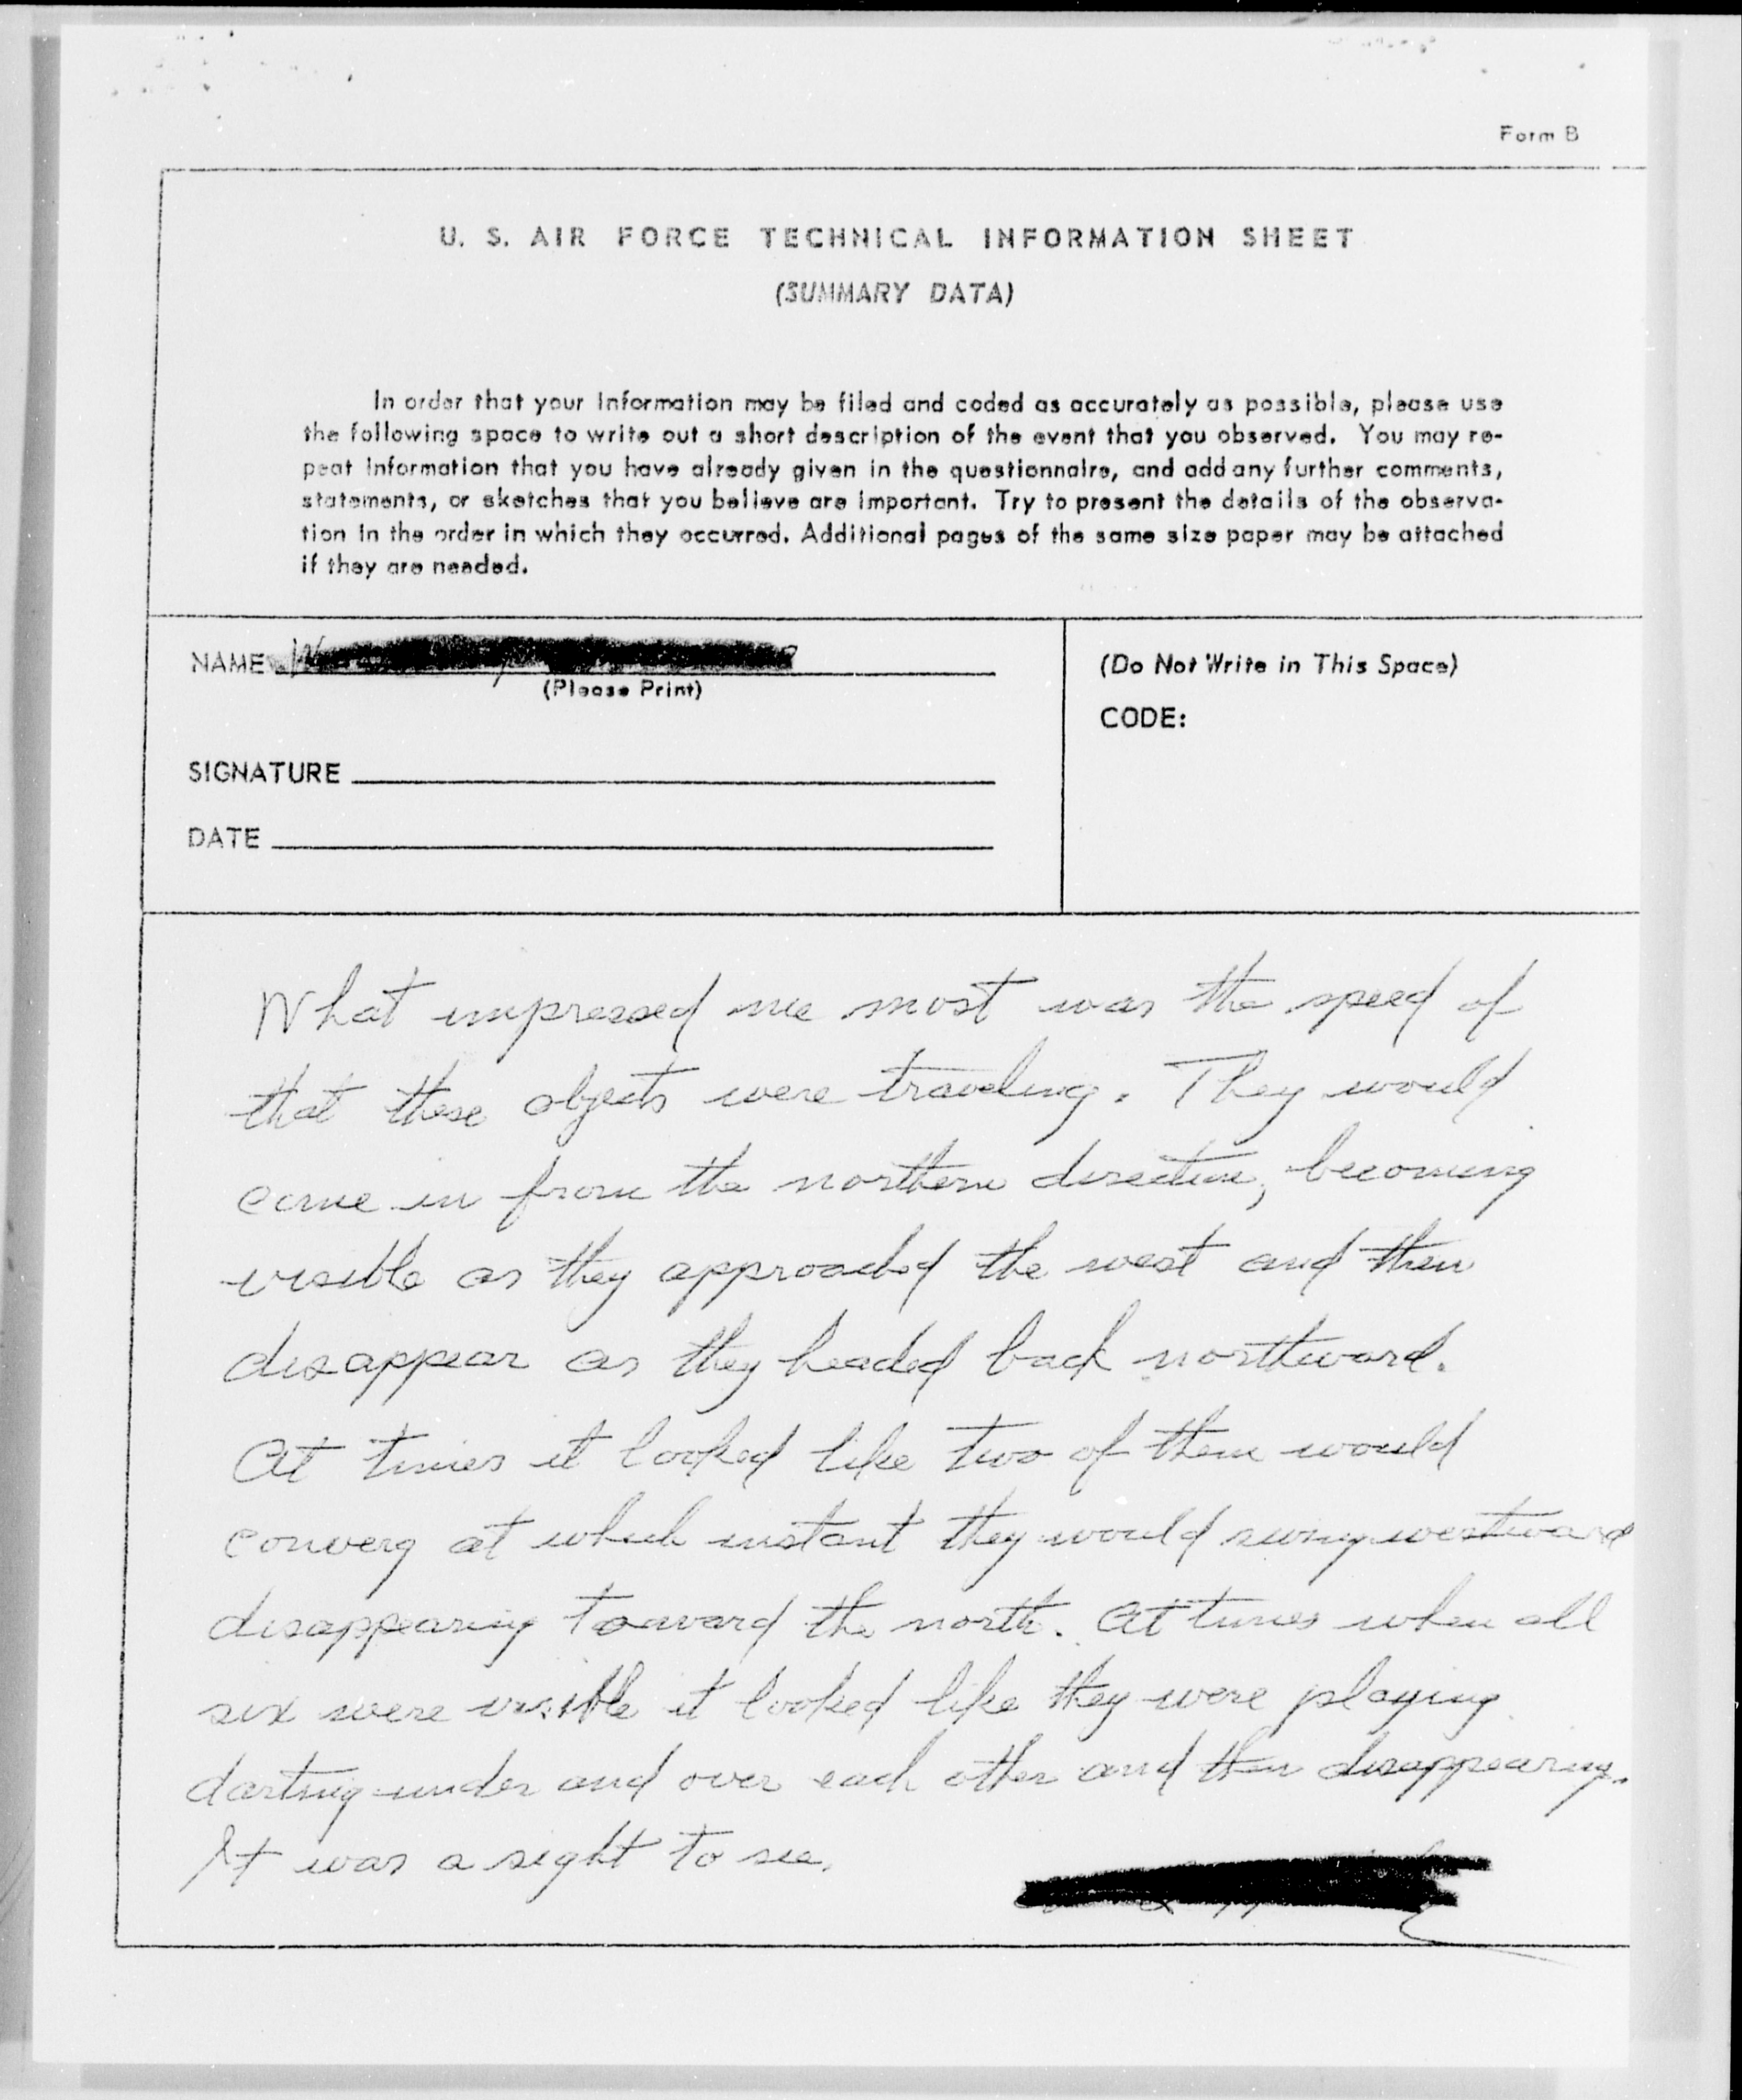 Form B
U. S. AIR FORCE TECHNICAL INFORMATION SHEET
(SUMMARY DATA)
In order that your information may be filed and coded as accurately as possible, please use
the following space to write out a short description of the event that you observed. You may re-
peat information that you have already given in the questionnaire, and add any further comments,
statements, or sketches that you believe are important. Try to present the details of the observa-
tion in the order in which they occurred. Additional pages of the same size paper may be attached
if they are needed.
NAME
(Please Print)
SIGNATURE
DATE
(Do Not Write in This Space)
CODE:
What impressed me most was the speed of
that these objects were traveling. They would
come in from the northern direction, becoming
visible as they approached the west and then
disappear as they headed back northward.
At times it looked like two of them would
converg at which instant they would swing westward
disappearing toward the north. At times when all
six were visible it looked like they were playing
darting under and over each other and then disappearing.
It was a sight to see.